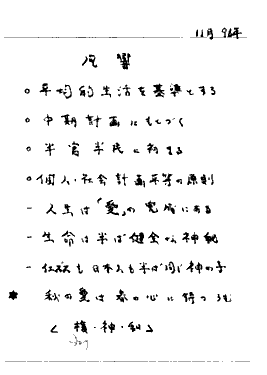 11月 96年
○ 平均的生活を基準とする
○ 中期計画にもとづく
○ 半官半民に初まる
○ 個人・社会計画平等の原則
- 人生は「愛」の完成にある
- 生命は半ば健全な神秘
- も日本人も半ば同じ神の子
* 私の愛は春の心に待つも